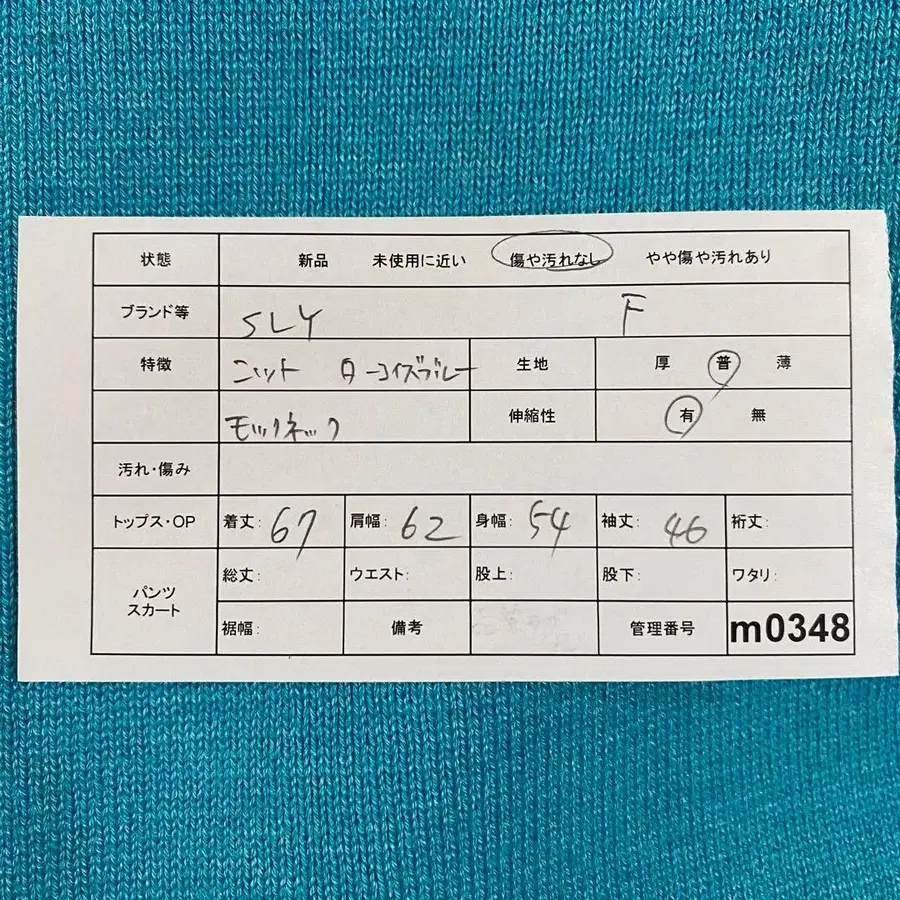 状態 新品 未使用に近い 傷や汚れなし やや傷や汚れあり
ブランド等 SLY F
特徴 ニット ターコイズブルー 生地 厚 普 薄
モックネック 伸縮性 有 無
汚れ・傷み
トップス・OP 着丈: 67 肩幅: 62 身幅: 54 袖丈: 46 裄丈:
パンツ スカート 総丈: ウエスト: 股上: 股下: ワタリ:
裾幅: 備考 管理番号 m0348